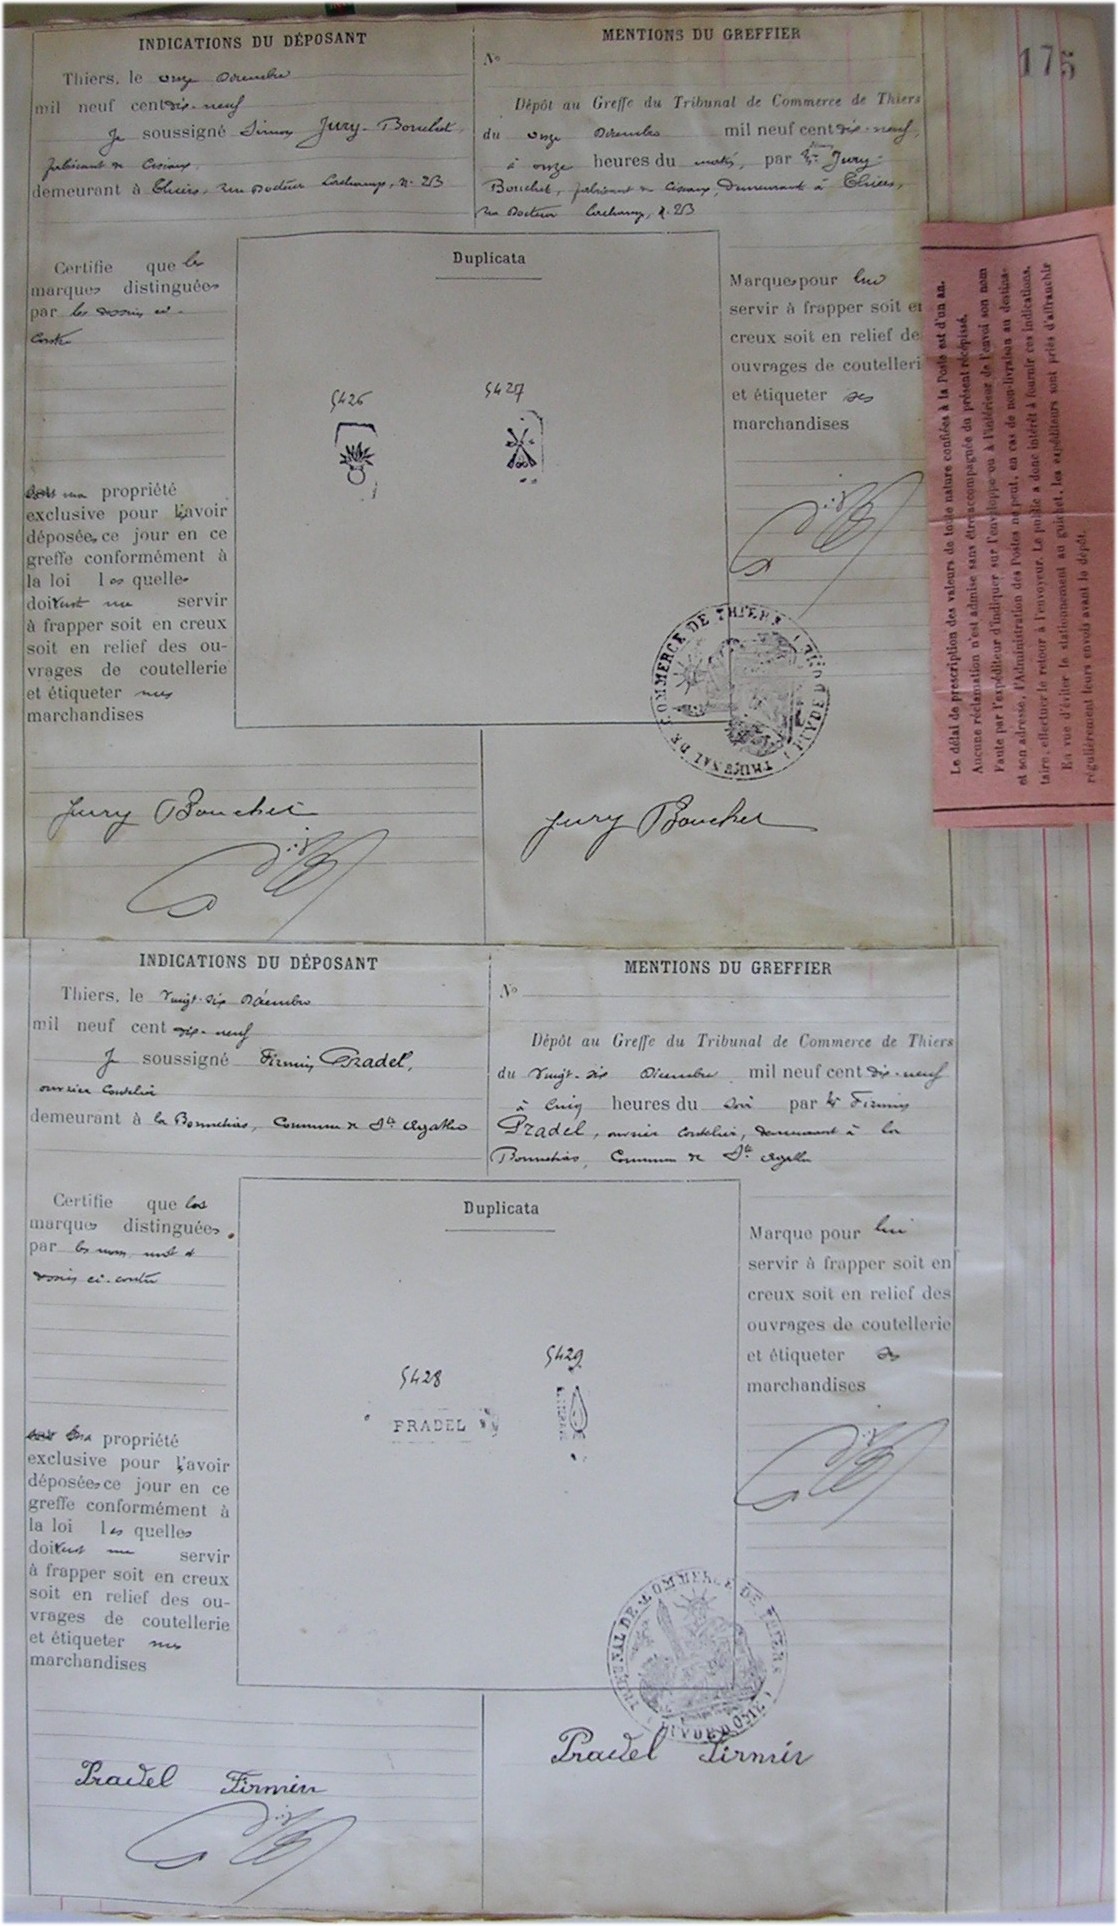 175
INDICATIONS DU DÉPOSANT
Thiers, le onze Décembre
mil neuf cent dix-neuf
Je soussigné Simon Jury-Bouchet,
fabricant de Ciseaux,
demeurant à Thiers, rue Docteur Lachamp, n. 23
MENTIONS DU GREFFIER
No
Dépôt au Greffe du Tribunal de Commerce de Thiers
du onze Décembre mil neuf cent dix-neuf,
à onze heures du matin, par Mr Jury-
Bouchet, fabricant de Ciseaux, demeurant à Thiers,
rue Docteur Lachamp, n. 23
Certifie que les
marques distinguées
par les dessins ci-
contre
ma propriété
exclusive pour l'avoir
déposées ce jour en ce
greffe conformément à
la loi les quelles
doivent me servir
à frapper soit en creux
soit en relief des ou-
vrages de coutellerie
et étiqueter mes
marchandises
Duplicata
5426
5427
Marques pour lui
servir à frapper soit en
creux soit en relief de
ouvrages de coutelleri
et étiqueter ses
marchandises
TRIBUNAL DE COMMERCE DE THIERS (PUY DE DOME)
Jury Bouchet
Jury Bouchet
Le délai de prescription des valeurs de toute nature confiées à la Poste est d'un an.
Aucune réclamation n'est admise sans être accompagnée du présent récépissé.
Faute par l'expéditeur d'indiquer sur l'enveloppe ou à l'intérieur de l'envoi son nom
et son adresse, l'Administration des Postes ne peut, en cas de non-livraison au destina-
taire, effectuer le retour à l'envoyeur. Le public a donc intérêt à fournir ces indications.
En vue d'éviter le stationnement au guichet, les expéditeurs sont priés d'affranchir
régulièrement leurs envois avant le dépôt.
INDICATIONS DU DÉPOSANT
Thiers, le vingt-six Décembre
mil neuf cent dix-neuf
Je soussigné Firmin Pradel,
ouvrier coutelier
demeurant à la Bonnetias, Commune de Ste Agathe
MENTIONS DU GREFFIER
No
Dépôt au Greffe du Tribunal de Commerce de Thiers
du vingt-six Décembre mil neuf cent dix-neuf
à cinq heures du soir par Mr Firmin
Pradel, ouvrier coutelier, demeurant à la
Bonnetias, Commune de Ste Agathe
Certifie que les
marques distinguées
par les nom, mot et
dessin ci-contre
ma propriété
exclusive pour l'avoir
déposées ce jour en ce
greffe conformément à
la loi les quelles
doivent me servir
à frapper soit en creux
soit en relief des ou-
vrages de coutellerie
et étiqueter mes
marchandises
Duplicata
5428
5429
PRADEL
Marque pour lui
servir à frapper soit en
creux soit en relief des
ouvrages de coutellerie
et étiqueter ses
marchandises
TRIBUNAL DE COMMERCE DE THIERS (PUY DE DOME)
Pradel Firmin
Pradel Firmin